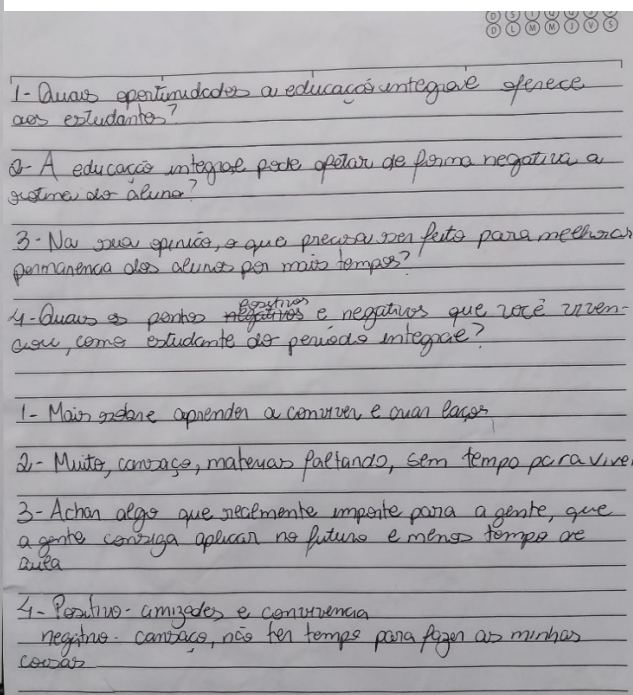 D S T Q Q S S
D L M M J V S
1- Quais oportunidades a educação integral oferece
aos estudantes?
2- A educação integral pode afetar de forma negativa a
rotina do aluno?
3- Na sua opinião, o que precisa ser feito para melhorar
permanência dos alunos por mais tempos?
positivos
4- Quais os pontos negativos e negativos que você viven-
ciou, como estudante do período integral?
1- Mais sobre aprender a conviver e criar laços
2- Muito, cansaço, materias faltando, sem tempo para viver
3- Achar algo que realmente importe para a gente, que
a gente consiga aplicar no futuro e menos tempo de
aula
4- Positivo- amizades e convivencia
negativo- cansaço, não ter tempo para fazer as minhas
coisas